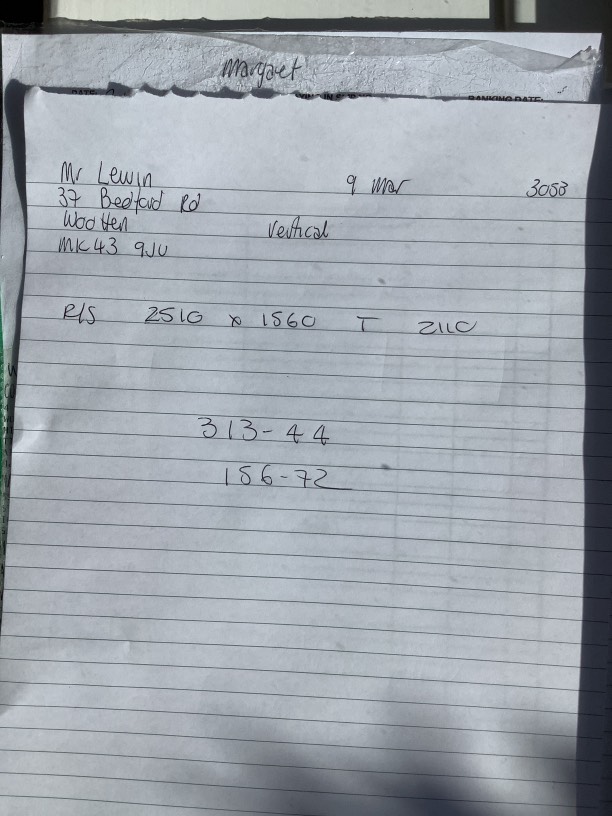 Margaret
BANKING DATE:
Mr Lewin 9 Mar 3053
37 Bedford Rd
Wootten Vertical
MK43 9JU
R/S 2510 x 1560 T 2110
313-44
156-72